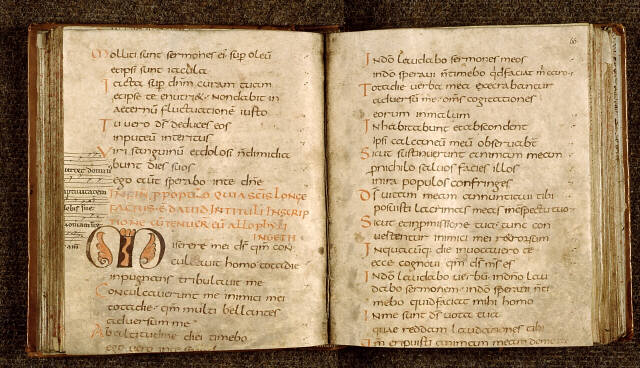 Molliti sunt sermones ei sup oleũ
et ipsi sunt iacula
Iacta sup dnm curam tuam
et ipse te enutriet Nondabit in
aeternũ fluctuationẽ iusto
Tu vero ds deduces eos
in puteũ interitus
Viri sanguinũ et dolosi ñ dimidia
bunt dies suos
ego aut sperabo in te dñe
IN FIN P POPULO QUI A SCIS LONGE
FACTUS E DAVID IN TITULI INSCRIP
TIONE CŨ TENUER EŨ ALLOPHYLI
IN GETH
Miserere mei ds qm con
culcavit homo tota die
inpugnans tribulavit me
Conculcaverunt me inimici mei
tota die qm multi bellantes
adversum me
Ab altitudine diei timebo
ego vero in te
66
In dõ laudabo sermones meos
in dõ speravi ñ timebo qd faciat m caro
Tota die verba mea execrabantur
adversũ me oms cogitationes
eorum in malum
Inhabitabunt et abscondent
ipsi calcaneũ meũ observabt
Sicut sustinuerunt animam meam
p nichilo salvos facies illos
in ira populos confringes
Ds vitam meam annunciavi tibi
posuisti lacrimas meas in conspectu tuo
Sicut et in pmissione tua tunc con
vertentur inimici mei retrorsum
In quacũq die invocavero te
ecce cognovi qm ds ms es
In dõ laudabo verbũ in dño lau
dabo sermonem in dõ speravi ñ ti
mebo quid faciat mihi homo
In me sunt ds vota tua
quae reddam laudationes tibi
Qm eripuisti animam meam de morte